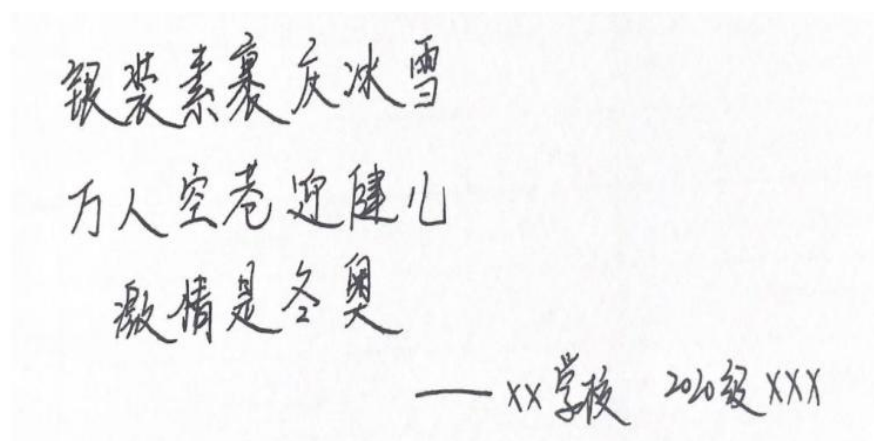 银装素裹庆冰雪
万人空巷迎健儿
激情是冬奥
——xx学校 2020级XXX